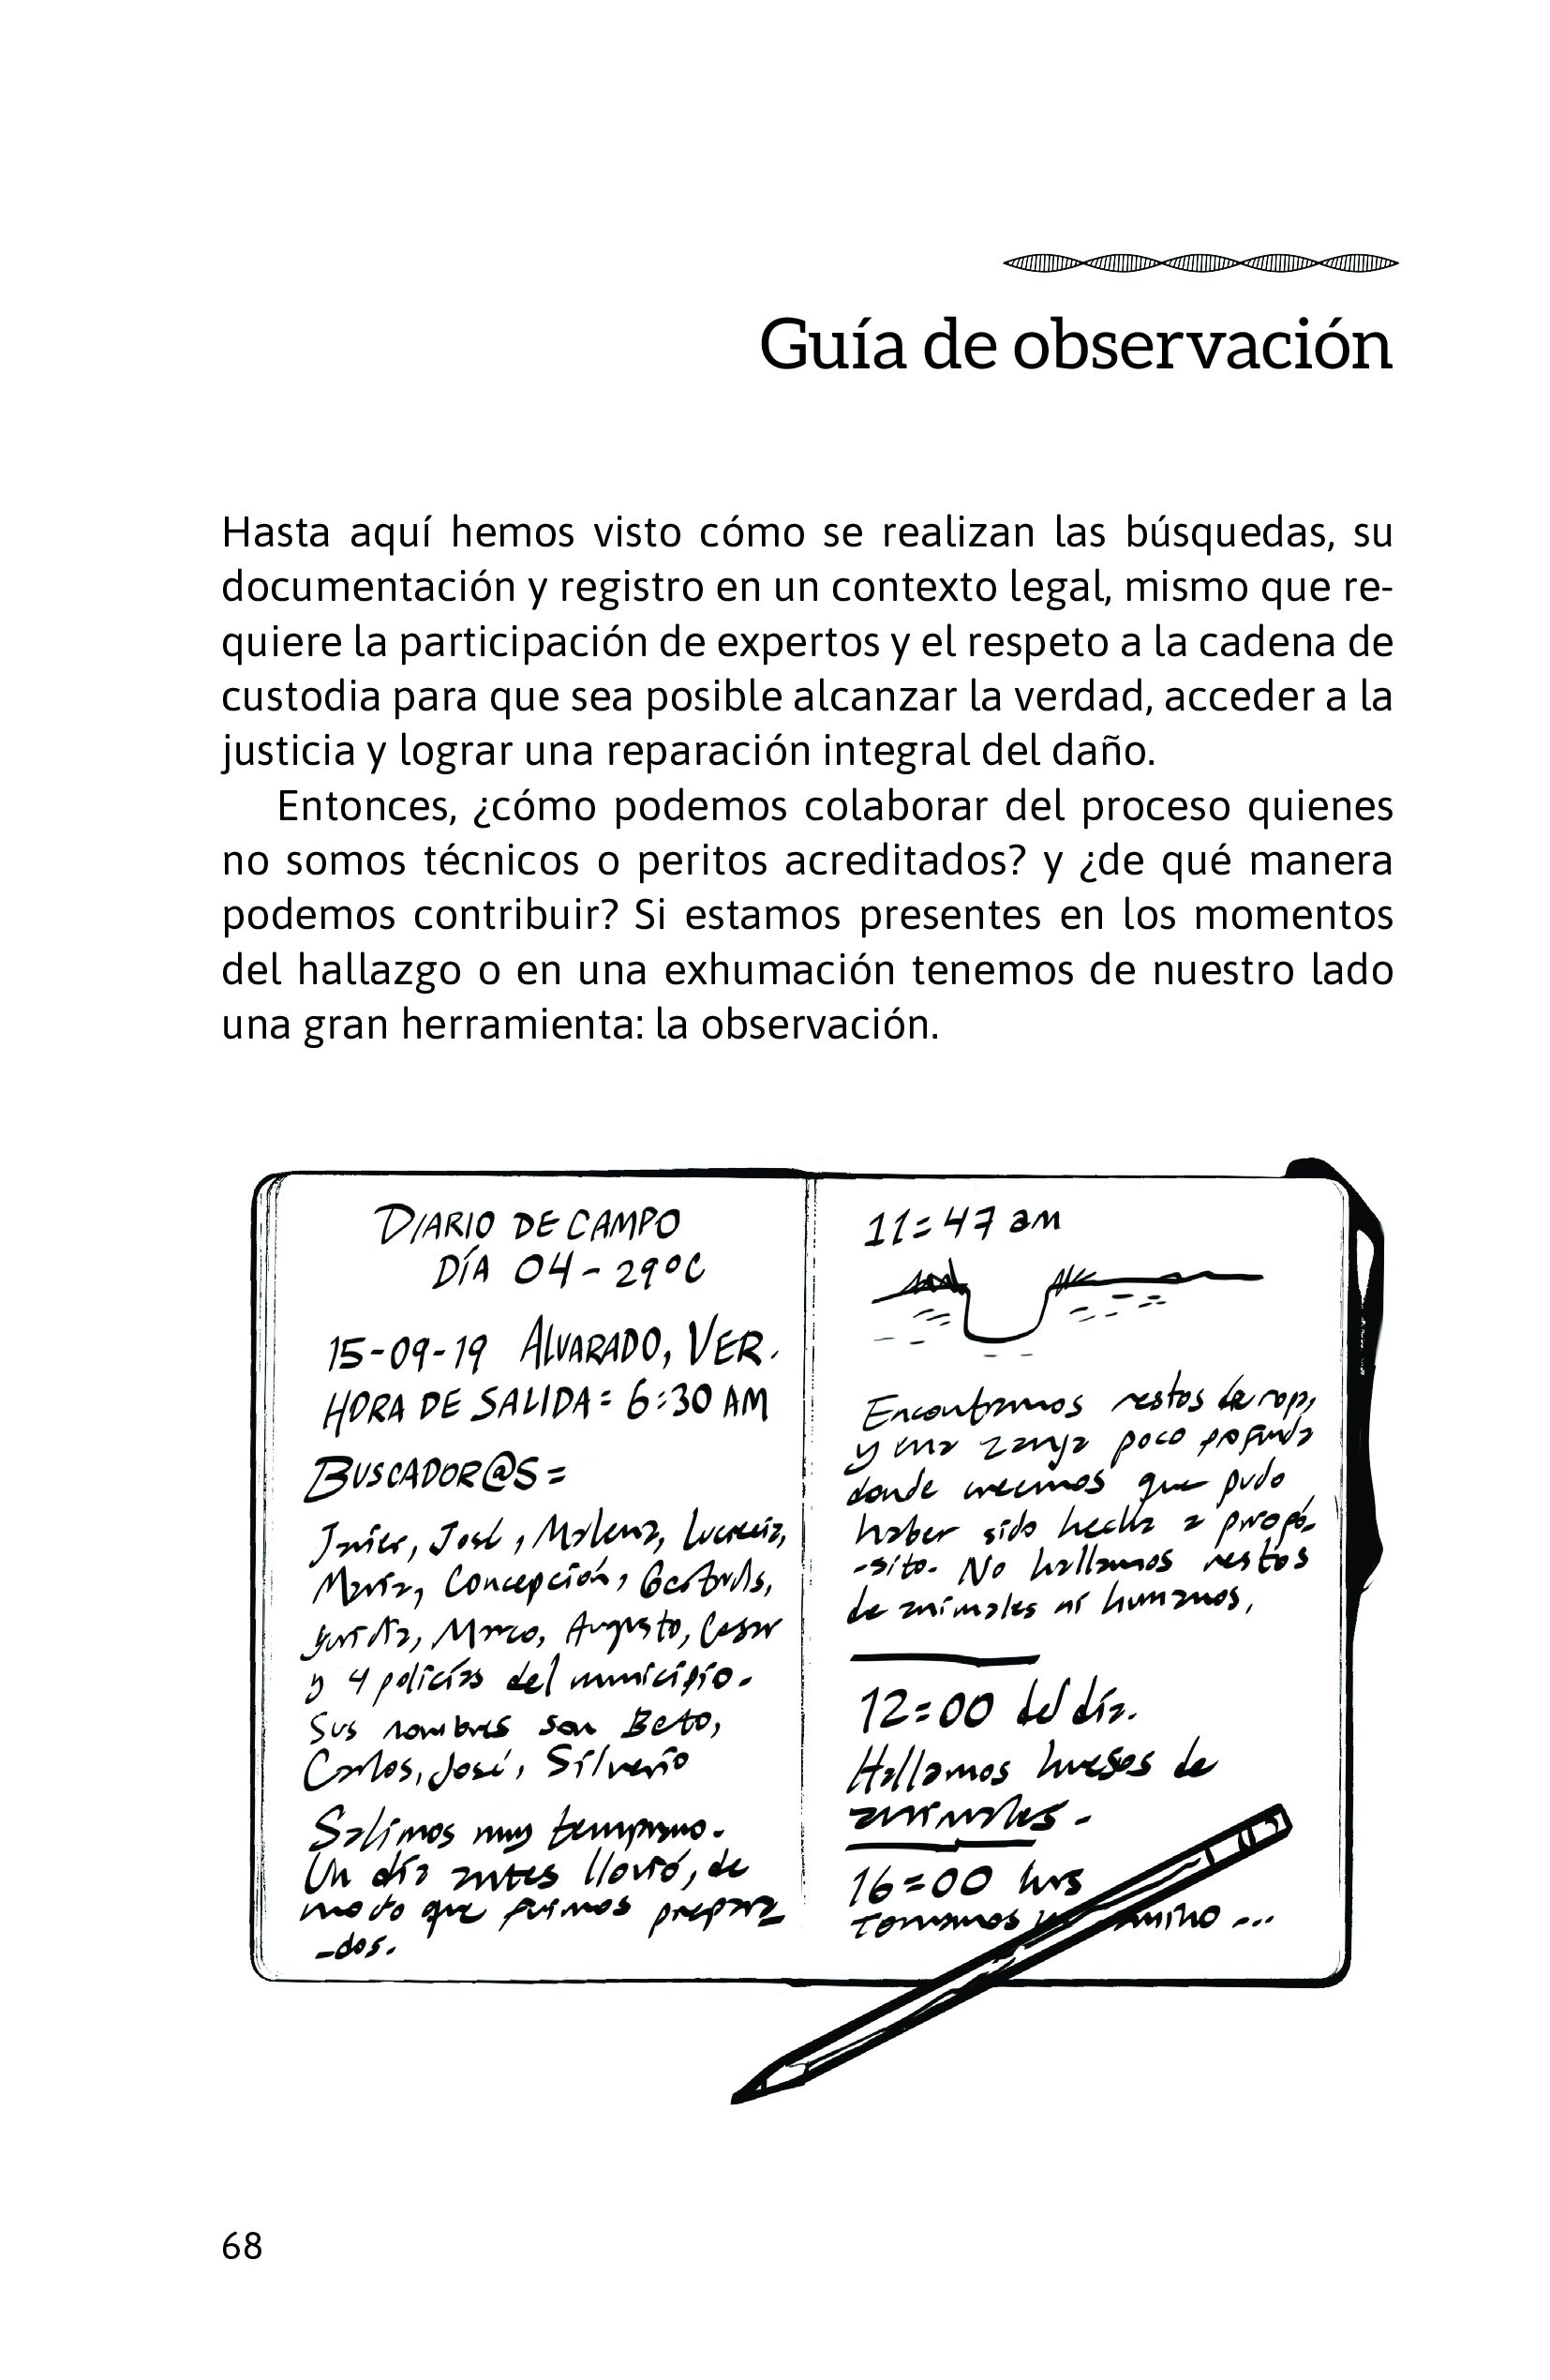 Guía de observación
Hasta aquí hemos visto cómo se realizan las búsquedas, su
documentación y registro en un contexto legal, mismo que re-
quiere la participación de expertos y el respeto a la cadena de
custodia para que sea posible alcanzar la verdad, acceder a la
justicia y lograr una reparación integral del daño.
Entonces, ¿cómo podemos colaborar del proceso quienes
no somos técnicos o peritos acreditados? y ¿de qué manera
podemos contribuir? Si estamos presentes en los momentos
del hallazgo o en una exhumación tenemos de nuestro lado
una gran herramienta: la observación.
DIARIO DE CAMPO
DÍA 04 - 29°C
15-09-19 ALVARADO, VER.
HORA DE SALIDA = 6:30 AM
BUSCADOR@S =
Javier, José, Malena, Lucrecia,
María, Concepción, Gertrudis,
Marco, Augusto, Cesar
y 4 policías del municipio.
Sus nombres son Beto,
Carlos, José, Silverio
Salimos muy temprano.
Un día antes llovió, de
modo que fuimos prepara
-dos.
11=47 am
Encontramos restos de ropa,
y una zanja poco profunda
donde creemos que pudo
haber sido hecha a propó-
-sito. No hallamos restos
de animales ni humanos.
12=00 del día.
Hallamos huesos de
animales.
16=00 hrs
Tomamos ...
68